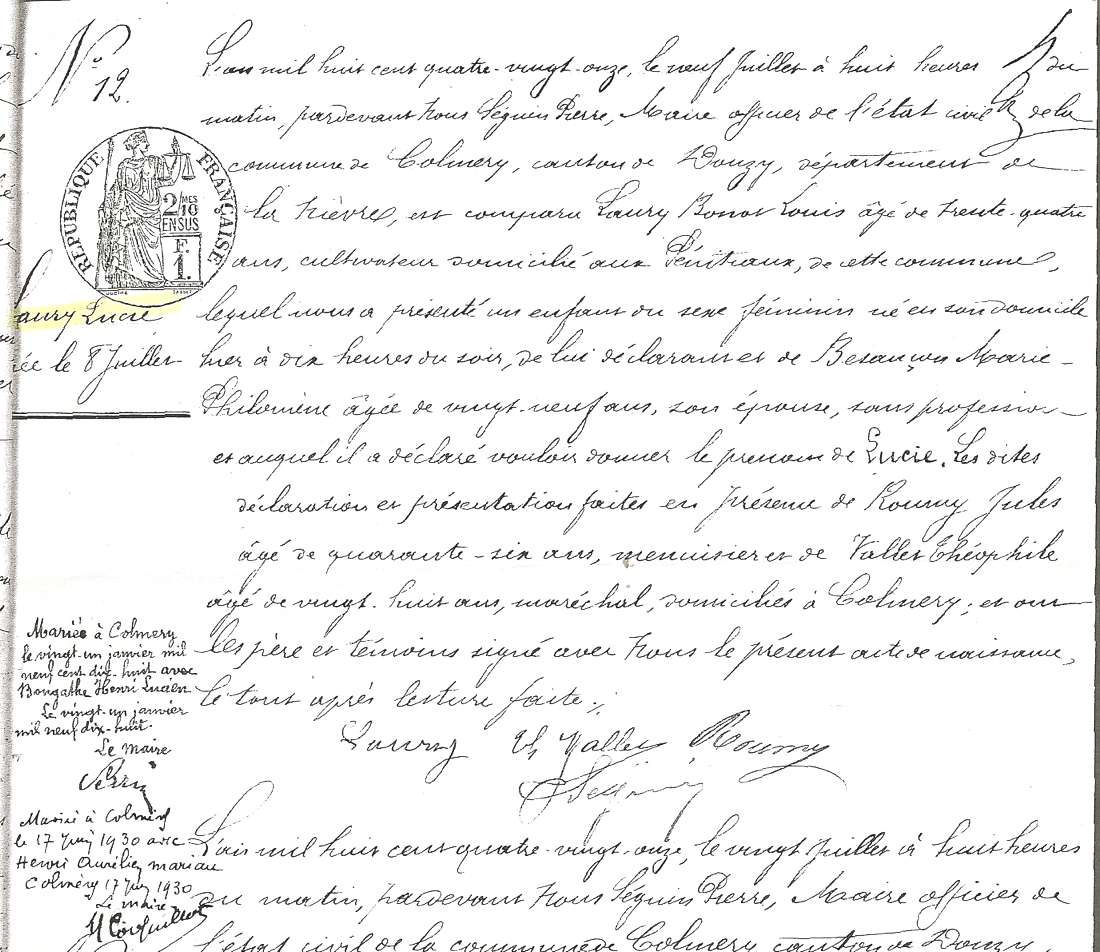 N° 12.
RÉPUBLIQUE FRANÇAISE
2/10 MES
EN SUS
F.
1.
Laury Lucie
née le 8 Juillet
L'an mil huit cent quatre-vingt-onze, le neuf Juillet à huit heures du
matin, pardevant Nous Séguin Pierre, Maire officier de l'état civil de la
commune de Colmery, canton de Donzy, département de
la Nièvre, est comparu Laury Bonot Louis âgé de trente-quatre
ans, cultivateur domicilié aux Pénitiaux, de cette commune,
lequel nous a présenté un enfant du sexe féminin né en son domicile
hier à dix heures du soir, de lui déclarant et de Besançon Marie-
Philomène âgée de vingt-neuf ans, son épouse, sans profession
et auquel il a déclaré vouloir donner le prénom de Lucie. Les dites
déclaration et présentation faites en présence de Roumy Jules
âgé de quarante-six ans, menuisier et de Vallet Théophile
âgé de vingt-huit ans, maréchal, domiciliés à Colmery; et ont
les père et témoins signé avec Nous le présent acte de naissance,
le tout après lecture faite.
Laury Vallet Roumy
Séguin
Mariée à Colmery
le vingt-un janvier mil
neuf cent dix-huit avec
Bongathe Henri Lucien
Le vingt-un janvier
mil neuf dix-huit.
Le maire
Mariée à Colméry
le 17 Juin 1930 avec
Henri Aurélien mariau
Colméry 17 Juin 1930
Le maire
L'an mil huit cent quatre-vingt-onze, le vingt Juillet à huit heures
du matin, pardevant Nous Séguin Pierre, Maire officier de
l'état civil de la commune de Colmery, canton de Donzy